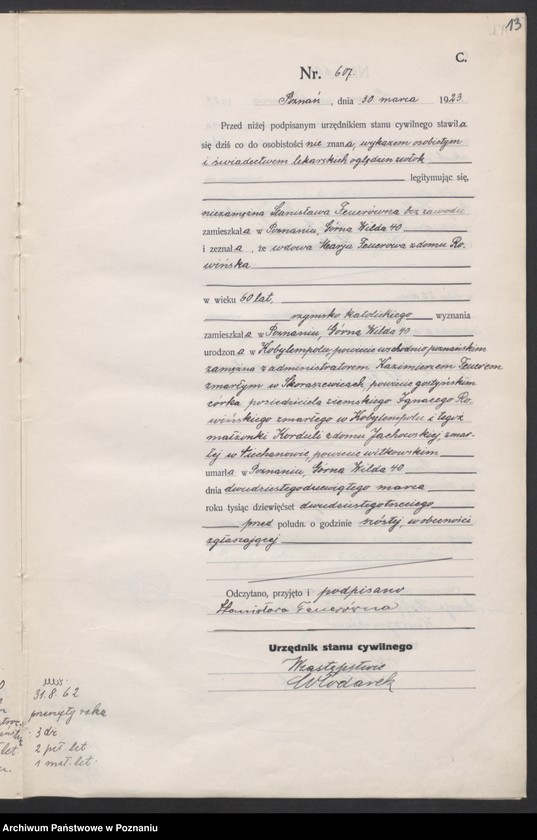 13
C.
Nr. 607
Poznań, dnia 30 marca 1923
Przed niżej podpisanym urzędnikiem stanu cywilnego stawiła
się dziś co do osobistości nie znana, wykazem osobistym
i świadectwem lekarskich oględzin zwłok
legitymując się,
niezamężna Stanisława Feuerówna bez zawodu
zamieszkała w Poznaniu, Górna Wilda 40
i zeznała, że wdowa Marja Feuerowa z domu Ro-
wińska
w wieku 60 lat,
rzymsko katolickiego wyznania
zamieszkała w Poznaniu, Górna Wilda 40
urodzona w Kobylempolu, powiecie wschodnio poznańskim
zamężna z administratorem Kazimierzem Feuerem
zmarłym w Skoraszewicach, powiecie gostyńskim
córka posiedziciela ziemskiego Ignacego Ro-
wińskiego zmarłego w Kobylempolu i tegoż
małżonki Korduli z domu Jachowskiej zmar-
łej w powiecie witkowskim
umarła w Poznaniu, Górna Wilda 40
dnia dwudziestego dziewiątego marca
roku tysiąc dziewięćset dwudziestego trzeciego
przed połudn. o godzinie szóstej, w obecności
zgłaszającej
Odczytano, przyjęto i podpisano
Stanisława Feuerówna
Urzędnik stanu cywilnego
W zastępstwie
Włodarek
31.8.62
3 dz
2 peł. let
1 mał. let.
Archiwum Państwowe w Poznaniu